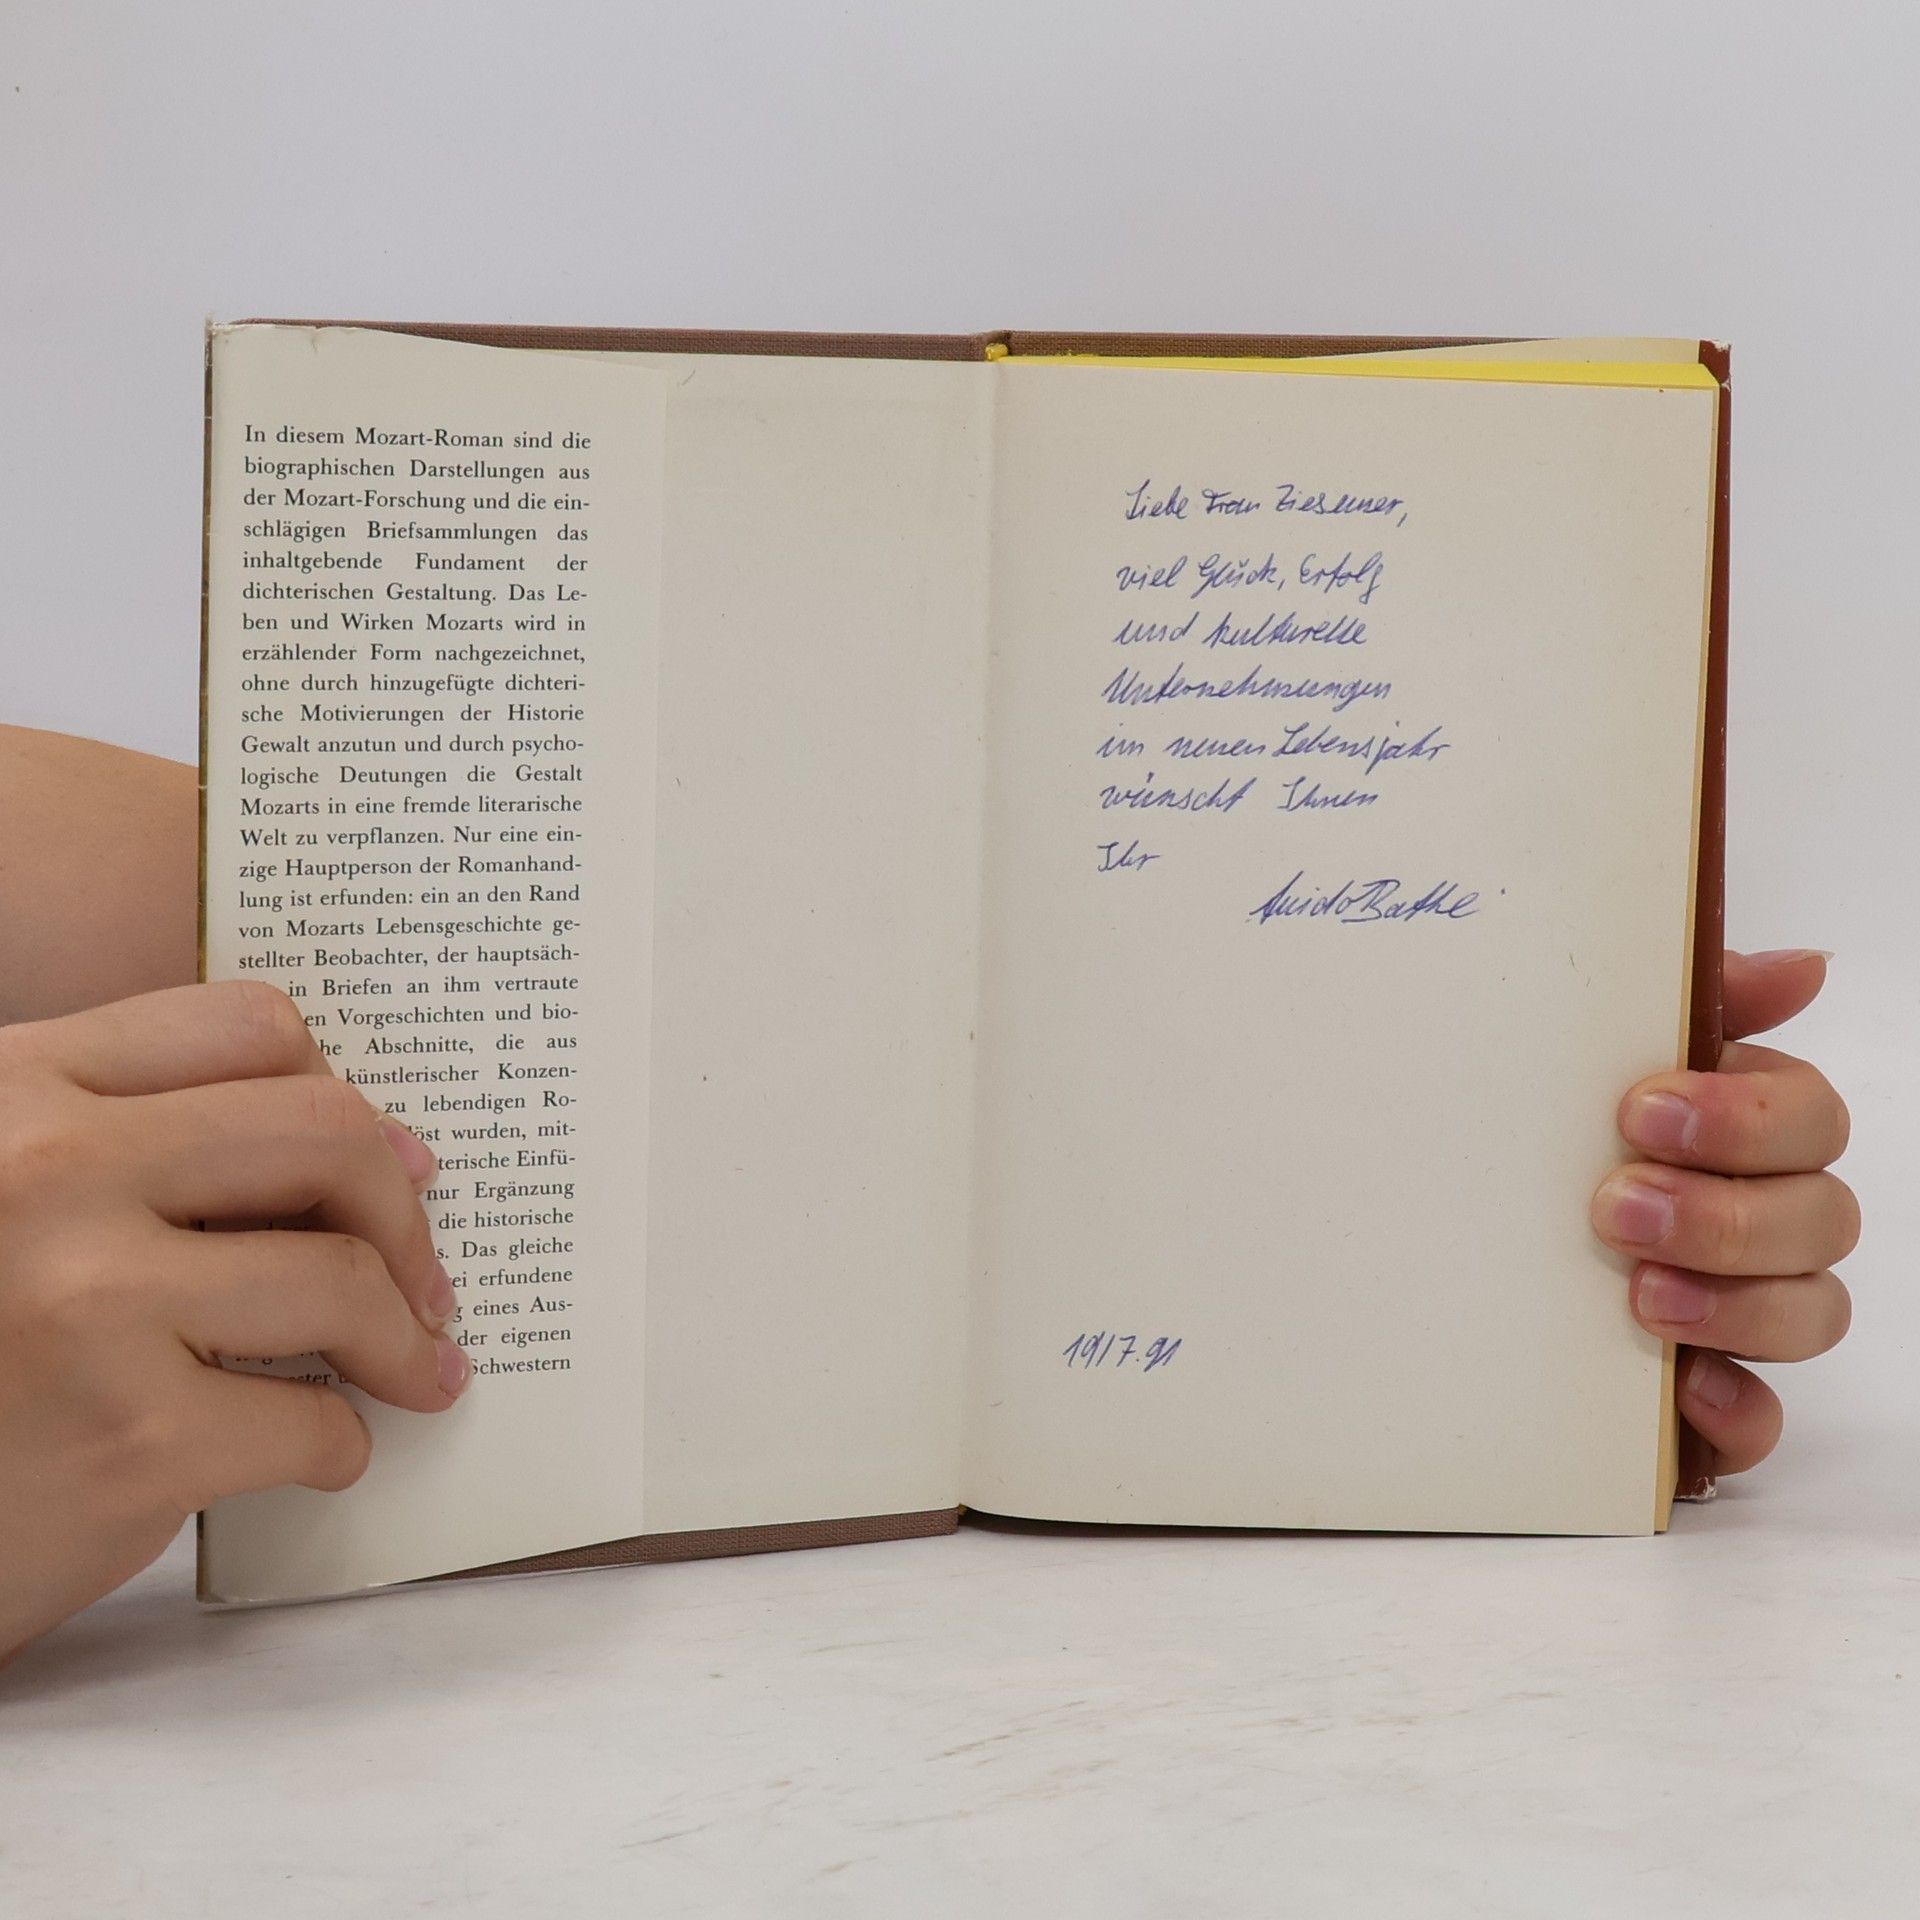 In diesem Mozart-Roman sind die
biographischen Darstellungen aus
der Mozart-Forschung und die ein-
schlägigen Briefsammlungen das
inhaltgebende Fundament der
dichterischen Gestaltung. Das Le-
ben und Wirken Mozarts wird in
erzählender Form nachgezeichnet,
ohne durch hinzugefügte dichteri-
sche Motivierungen der Historie
Gewalt anzutun und durch psycho-
logische Deutungen die Gestalt
Mozarts in eine fremde literarische
Welt zu verpflanzen. Nur eine ein-
zige Hauptperson der Romanhand-
lung ist erfunden: ein an den Rand
von Mozarts Lebensgeschichte ge-
stellter Beobachter, der hauptsäch-
in Briefen an ihm vertraute
en Vorgeschichten und bio-
he Abschnitte, die aus
künstlerischer Konzen-
zu lebendigen Ro-
öst wurden, mit-
terische Einfü-
nur Ergänzung
die historische
s. Das gleiche
ei erfundene
g eines Aus-
der eigenen
Schwestern
Liebe Frau Ziesemer,
viel Glück, Erfolg
und kulturelle
Unternehmungen
im neuen Lebensjahr
wünscht Ihnen
Ihr
Guido Bathe
19/7.91